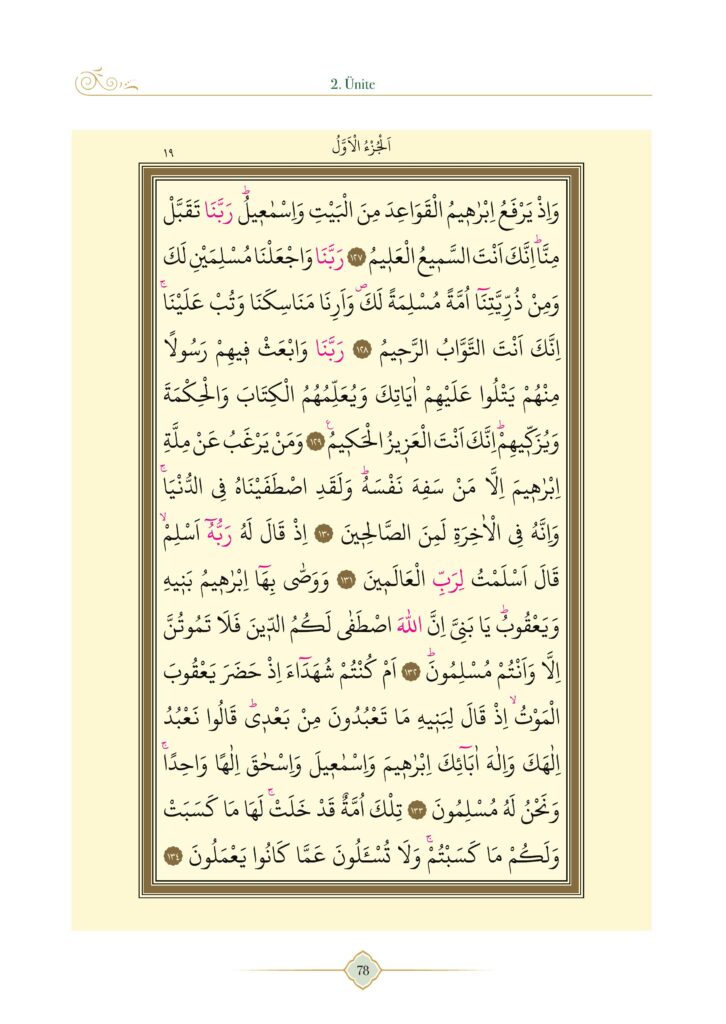 2. Ünite
اَلْجُزْءُ الْاَوَّلُ ١٩
وَاِذْ يَرْفَعُ اِبْرٰه۪يمُ الْقَوَاعِدَ مِنَ الْبَيْتِ وَاِسْمٰع۪يلُۜ رَبَّنَا تَقَبَّلْ
مِنَّاۜ اِنَّكَ اَنْتَ السَّم۪يعُ الْعَل۪يمُ ﴿١٢٧﴾ رَبَّنَا وَاجْعَلْنَا مُسْلِمَيْنِ لَكَ
وَمِنْ ذُرِّيَّتِنَٓا اُمَّةً مُسْلِمَةً لَكَۖ وَاَرِنَا مَنَاسِكَنَا وَتُبْ عَلَيْنَاۚ
اِنَّكَ اَنْتَ التَّوَّابُ الرَّح۪يمُ ﴿١٢٨﴾ رَبَّنَا وَابْعَثْ ف۪يهِمْ رَسُولًا
مِنْهُمْ يَتْلُوا عَلَيْهِمْ اٰيَاتِكَ وَيُعَلِّمُهُمُ الْكِتَابَ وَالْحِكْمَةَ
وَيُزَكّ۪يهِمْۜ اِنَّكَ اَنْتَ الْعَز۪يزُ الْحَك۪يمُ۟ ﴿١٢٩﴾ وَمَنْ يَرْغَبُ عَنْ مِلَّةِ
اِبْرٰه۪يمَ اِلَّا مَنْ سَفِهَ نَفْسَهُۜ وَلَقَدِ اصْطَفَيْنَاهُ فِى الدُّنْيَاۚ
وَاِنَّهُ فِى الْاٰخِرَةِ لَمِنَ الصَّالِح۪ينَ ﴿١٣٠﴾ اِذْ قَالَ لَهُ رَبُّهُٓ اَسْلِمْۙ
قَالَ اَسْلَمْتُ لِرَبِّ الْعَالَم۪ينَ ﴿١٣١﴾ وَوَصّٰى بِهَٓا اِبْرٰه۪يمُ بَن۪يهِ
وَيَعْقُوبُۜ يَا بَنِىَّ اِنَّ اللّٰهَ اصْطَفٰى لَكُمُ الدّ۪ينَ فَلَا تَمُوتُنَّ
اِلَّا وَاَنْتُمْ مُسْلِمُونَۜ ﴿١٣٢﴾ اَمْ كُنْتُمْ شُهَدَٓاءَ اِذْ حَضَرَ يَعْقُوبَ
الْمَوْتُۙ اِذْ قَالَ لِبَن۪يهِ مَا تَعْبُدُونَ مِنْ بَعْد۪ىۜ قَالُوا نَعْبُدُ
اِلٰهَكَ وَاِلٰهَ اٰبَٓائِكَ اِبْرٰه۪يمَ وَاِسْمٰع۪يلَ وَاِسْحٰقَ اِلٰهًا وَاحِدًاۚ
وَنَحْنُ لَهُ مُسْلِمُونَ ﴿١٣٣﴾ تِلْكَ اُمَّةٌ قَدْ خَلَتْۚ لَهَا مَا كَسَبَتْ
وَلَكُمْ مَا كَسَبْتُمْۚ وَلَا تُسْـَٔلُونَ عَمَّا كَانُوا يَعْمَلُونَ ﴿١٣٤﴾
78